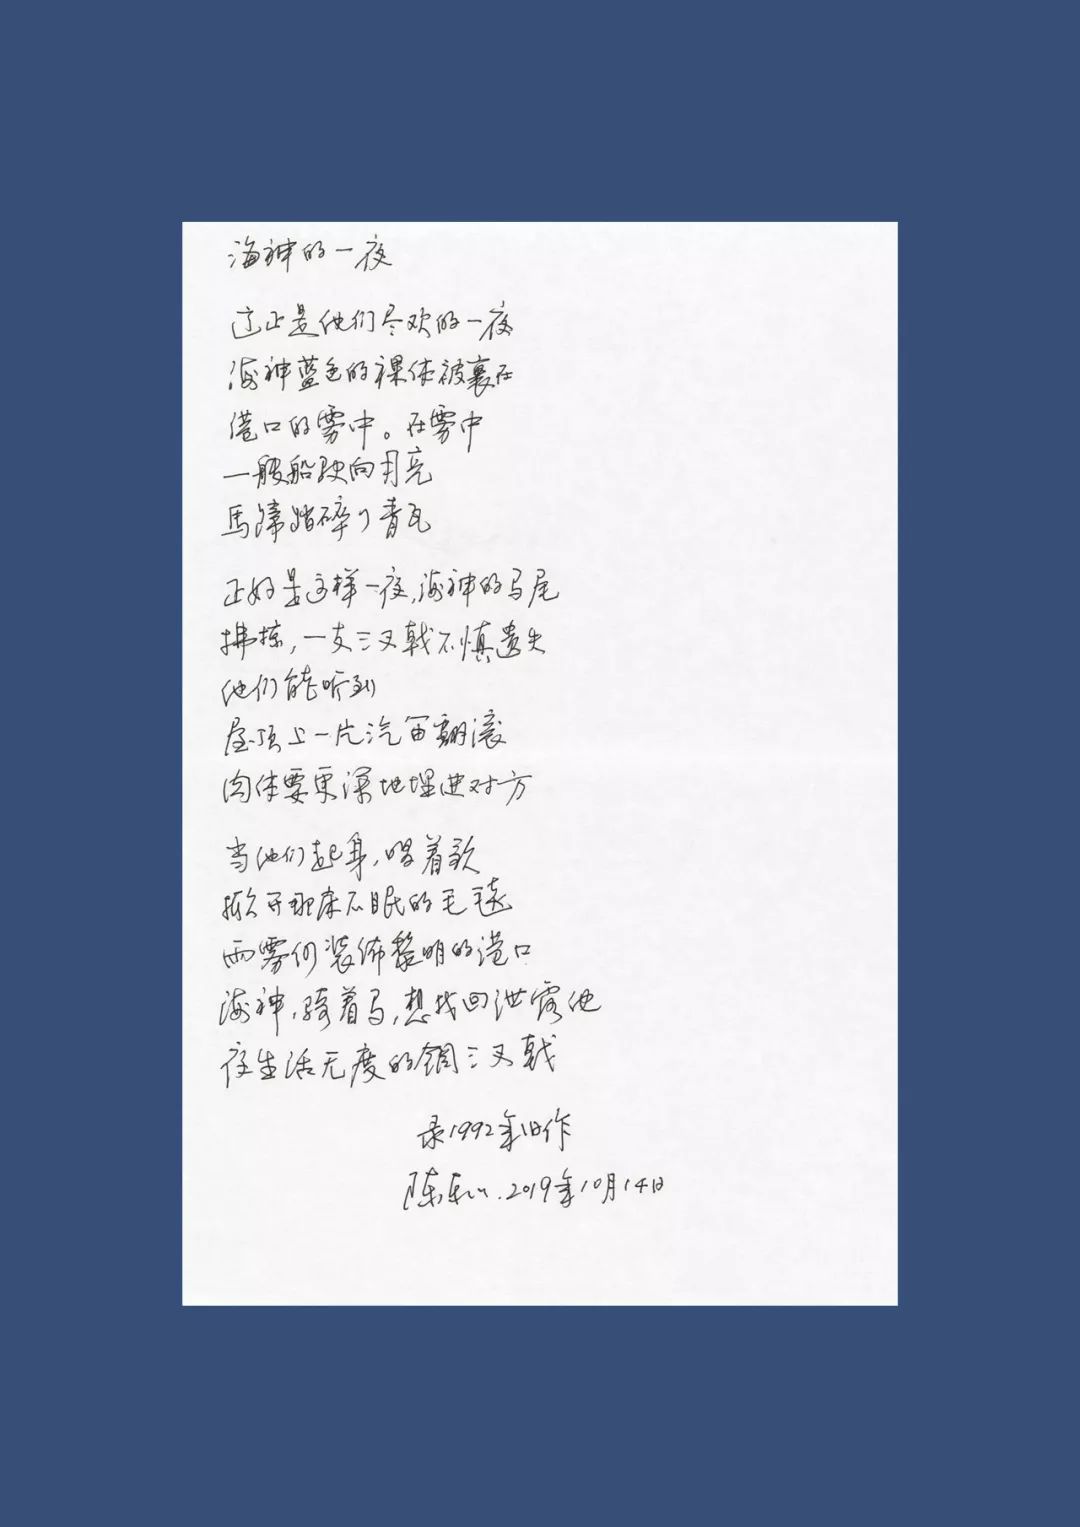 海神的一夜
这正是他们尽欢的一夜
海神蓝色的裸体被裹在
港口的雾中。在雾中
一艘船驶向月亮
馬蹄踏碎了青瓦
正好是这样一夜，海神的马尾
拂掠，一支三叉戟不慎遗失
他们能听到
屋顶上一片汽笛翻滚
肉体要更深地埋进对方
当他们起身，唱着歌
掀开那床不眠的毛毯
雨雾仍装饰黎明的港口
海神，骑着马，想找回泄露他
夜生活无度的铜三叉戟
录1992年旧作
陈东东.2019年10月14日